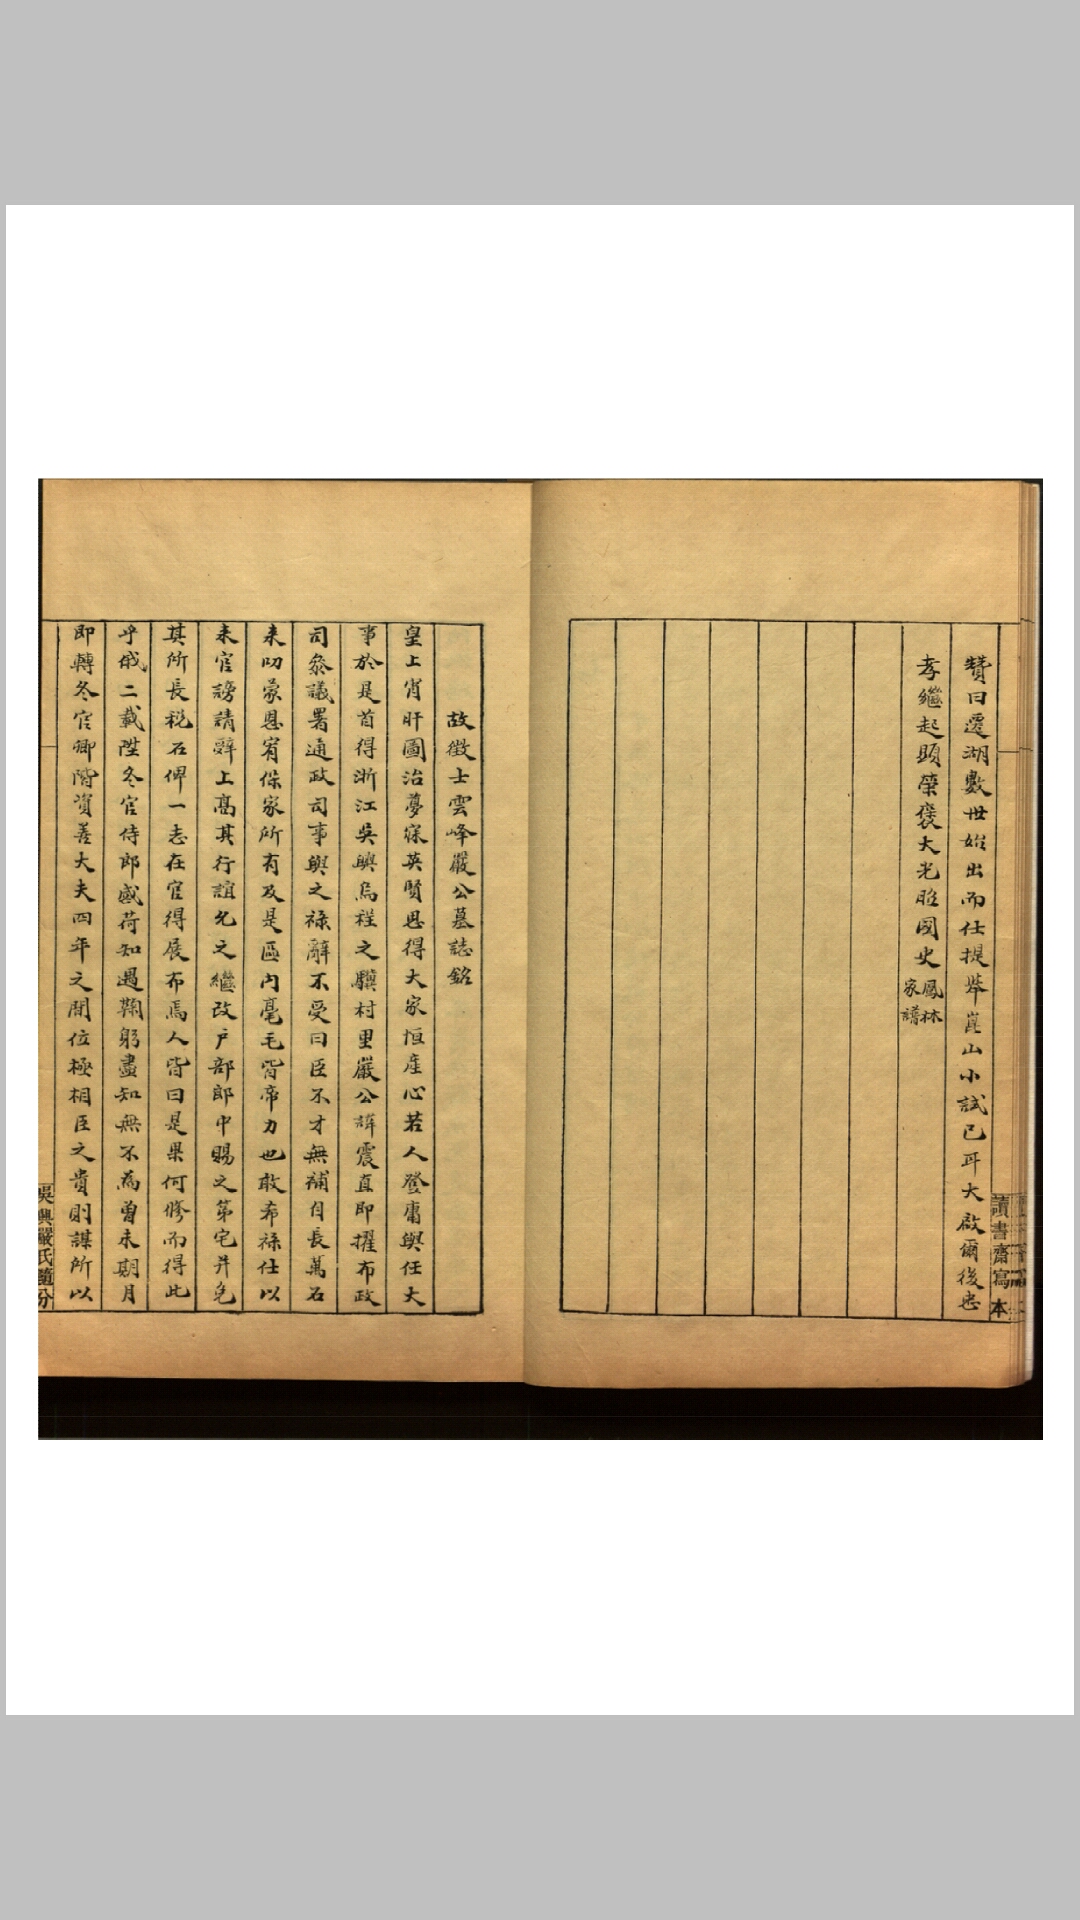 贊曰遷湖數世始出而仕提舉崑山小試已耳大啟爾後忠
孝繼起顯榮褒大光昭國史鳳林
家譜
讀書齋寫本
故徵士雲峰嚴公墓誌銘
皇上宵旰圖治夢寐英賢思得大家恒產心若人登庸與任大
事於是首得浙江吳興烏程之驥村里嚴公諱震直即擢布政
司叅議署通政司事與之祿辭不受曰臣不才無補自長萬石
來叨蒙恩宥保家所有及是區內毫毛皆帝力也敢希祿仕以
来官謗請辭上高其行誼允之繼改户部郎中賜之第宅并免
其所長稅石俾一志在官得展布焉人皆曰是果何修而得此
乎俄二載陞冬官侍郎感荷知遇鞠躬盡知無不為曾未期月
即轉冬官卿階資善大夫四年之間位極相臣之貴則謀所以
吳興嚴氏隨分